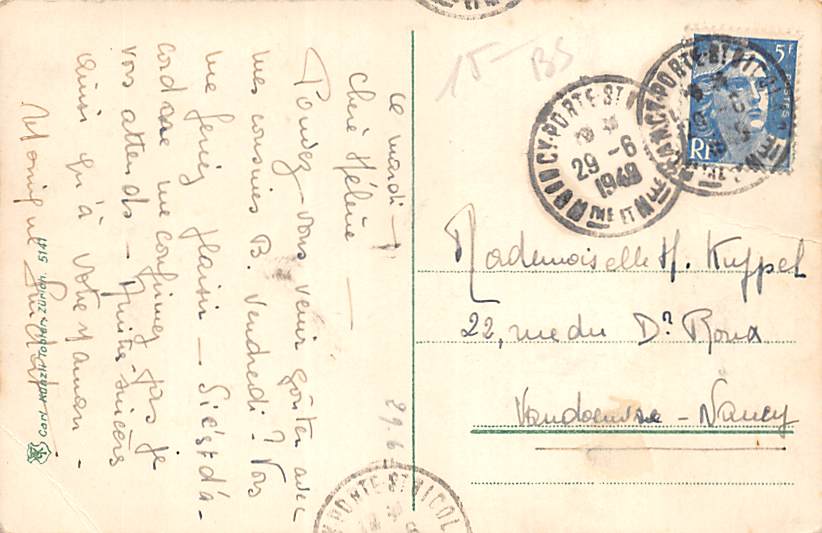 ce mardi -
chère Hélène -
Pouvez-vous venir goûter avec
mes cousines B. Vendredi? Vos
me feriez plaisir - Si c'est d'a-
cord ne me confirmez pas je
vous attends - Amitiés sincères
ainsi qu'à votre maman -
Monique
Carl Künzli-Tobler, Zürich. 5141
29.6
15-
BS
5F
POSTES
RF
NANCY-PORTE-ST NICOLAS
29-6
1948
MRTHE ET MLLE
NANCY-PORTE-ST NICOLAS
Mademoiselle H. Kuppel
22, rue du Dr Roux
Vandoeuvre - Nancy
NANCY-PORTE-ST NICOL